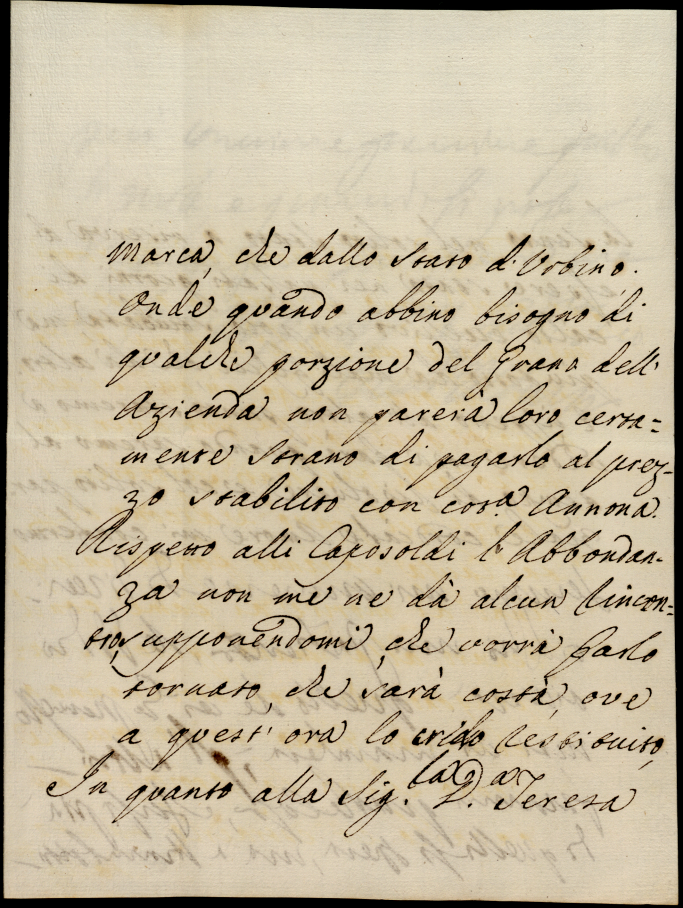 Marca, che dallo Stato d'Urbino.
Onde quando abbino bisogno di
qualche porzione del Grano dell'
Azienda non parerà loro certa=
mente strano di pagarlo al prez-
zo stabilito con cot.a Annona.
Rispetto alli Caposoldi l'Abbondan-
za non me ne dà alcun rincon=
tro, supponendomi, che vorrà farlo
tornato, che sarà costà, ove
a quest' ora lo credo restituito,
In quanto alla Sig.ra D.a Teresa